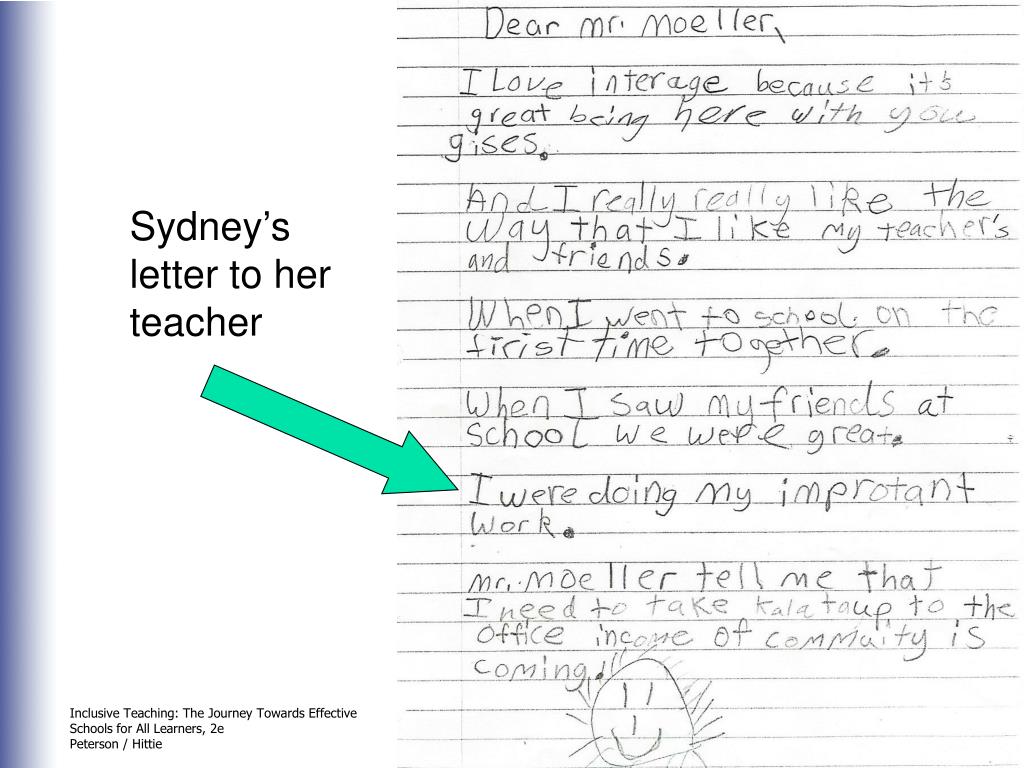 Sydney’s
letter to her
teacher
Dear mr. Moeller,
I Love interage because it's
great being here with you
gises.
And I really really like the
way that I like my teacher's
and friends.
When I went to school on the
tirist time together.
When I saw my friends at
school we were great.
I were doing my improtant
work.
mr. Moeller tell me that
I need to take up to the
office income of commuity is
coming.!!
Inclusive Teaching: The Journey Towards Effective
Schools for All Learners, 2e
Peterson / Hittie